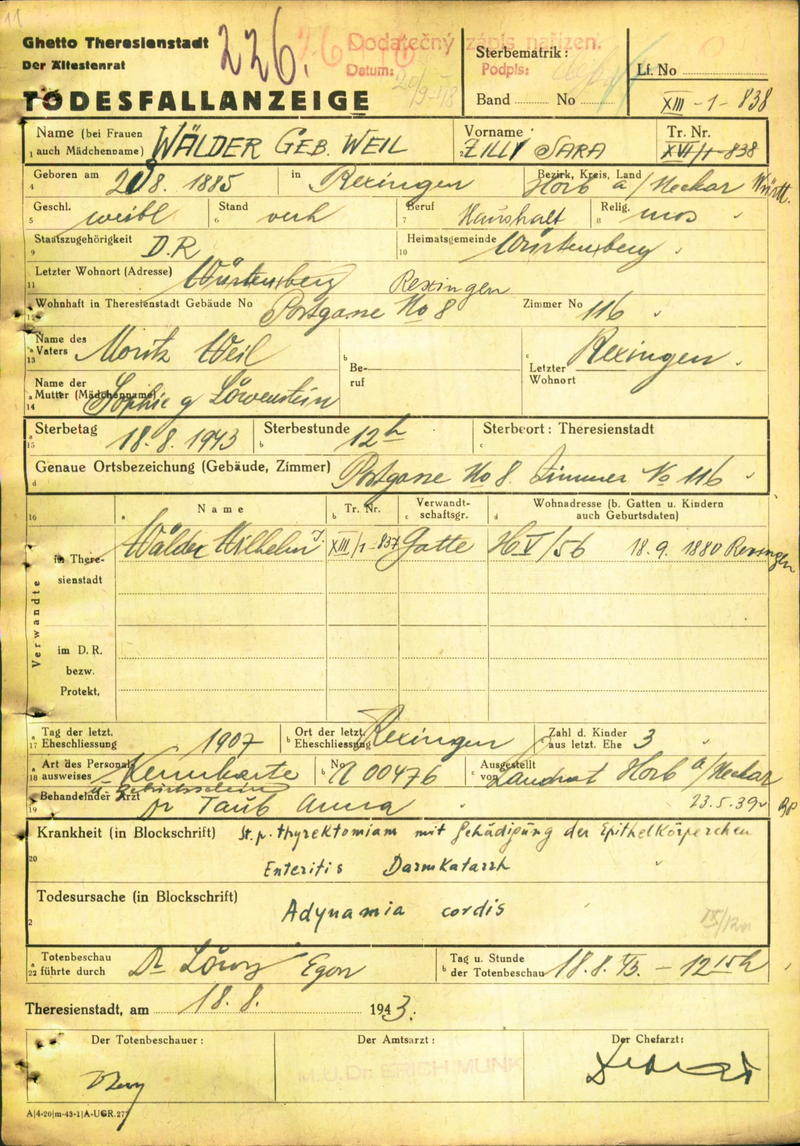 11
Ghetto Theresienstadt
Der Ältestenrat
TODESFALLANZEIGE
226.
Dodatečný zápis nařízen.
Datum:
Podpis:
Sterbematrik:
Band No
Lf. No
XIII-1-838
Name (bei Frauen auch Mädchenname) WÄLDER GEB. WEIL
Vorname ZILLY SARA
Tr. Nr. XVI/1-838
Geboren am 8. 1885 in Rexingen Bezirk, Kreis, Land Horb a/Neckar Württ.
Geschl. weibl Stand verh Beruf Haushalt Relig. mos
Staatszugehörigkeit D.R Heimatsgemeinde Würtenberg
Letzter Wohnort (Adresse) Würtenberg Rexingen
Wohnhaft in Theresienstadt Gebäude No Postgasse No 8 Zimmer No 116
Name des Vaters Moritz Weil Beruf Letzter Wohnort Rexingen
Name der Mutter (Mädchenname) Sophie g Löwenstein
Sterbetag 18.8.1943 Sterbestunde 12h Sterbeort: Theresienstadt
Genaue Ortsbezeichnung (Gebäude, Zimmer) Postgasse No 8. Zimmer No 116
Name Tr. Nr. Verwandtschaftsgr. Wohnadresse (b. Gatten u. Kindern auch Geburtsdaten)
Verwandte
in Theresienstadt Wälder Wilhelm I. XIII/1-837 Gatte H V/56 18.9.1880 Rexingen
im D. R. bezw. Protekt.
Tag der letzt. Eheschliessung 1907 Ort der letzt. Eheschliessung Rexingen Zahl d. Kinder aus letzt. Ehe 3
Art des Personalausweises Kennkarte No A 00476 Ausgestellt von Landrat Horb a/Neckar
u. Geburtsschein
Behandelnder Arzt Dr Taub Anna 23.5.39
Krankheit (in Blockschrift) St. p. thyrektomiam mit Schädigung der Epithelkörperchen
Enteritis Darmkatarrh
Todesursache (in Blockschrift)
Adynamia cordis
Totenbeschau führte durch Dr Löwy Egon Tag u. Stunde der Totenbeschau 18.8.43. - 12 15h
Theresienstadt, am 18.8. 1943.
Der Totenbeschauer: Der Amtsarzt: Der Chefarzt:
M.U.Dr. ERICH MUNK
A|4-20|m-43-1|A-UGR.277